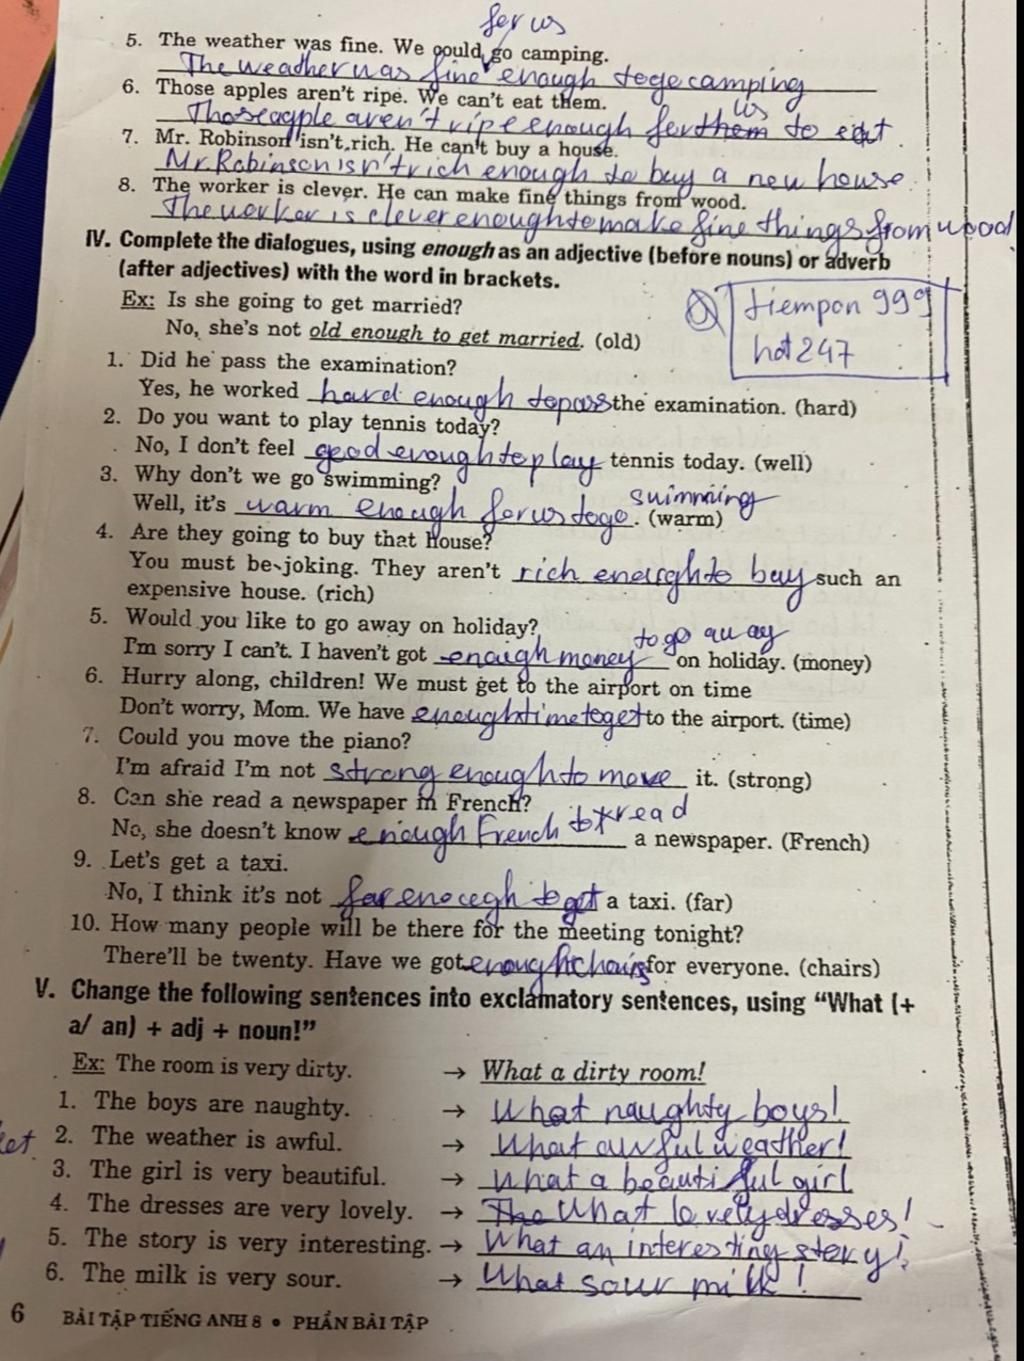 for us
5. The weather was fine. We could go camping.
The weather was fine enough to go camping
6. Those apples aren't ripe. We can't eat them.
us
Those apple aren't ripe enough for them to eat
7. Mr. Robinson isn't rich. He can't buy a house.
Mr. Robinson isn't rich enough to buy a new house
8. The worker is clever. He can make fine things from wood.
The worker is clever enough to make fine things from wood
IV. Complete the dialogues, using enough as an adjective (before nouns) or adverb
(after adjectives) with the word in brackets.
Ex: Is she going to get married?
No, she's not old enough to get married. (old)
tiempon 999
hot 247
1. Did he pass the examination?
Yes, he worked hard enough to pass the examination. (hard)
2. Do you want to play tennis today?
No, I don't feel good enough to play tennis today. (well)
3. Why don't we go swimming?
swimming
Well, it's warm enough for us to go. (warm)
4. Are they going to buy that House?
You must be joking. They aren't rich enough to buy such an
expensive house. (rich)
5. Would you like to go away on holiday?
to go away
I'm sorry I can't. I haven't got enough money on holiday. (money)
6. Hurry along, children! We must get to the airport on time
Don't worry, Mom. We have enough time to get to the airport. (time)
7. Could you move the piano?
I'm afraid I'm not strong enough to move it. (strong)
8. Can she read a newspaper in French?
No, she doesn't know enough French to read a newspaper. (French)
9. Let's get a taxi.
No, I think it's not far enough to get a taxi. (far)
10. How many people will be there for the meeting tonight?
There'll be twenty. Have we got enough chairs for everyone. (chairs)
V. Change the following sentences into exclamatory sentences, using “What (+
a/ an) + adj + noun!”
Ex: The room is very dirty. → What a dirty room!
1. The boys are naughty. → What naughty boys!
2. The weather is awful. → What awful weather!
3. The girl is very beautiful. → What a beautiful girl
4. The dresses are very lovely. → The What lovely dresses!
5. The story is very interesting. → What an interesting story!
6. The milk is very sour. → What sour milk!
6 BÀI TẬP TIẾNG ANH 8 • PHẦN BÀI TẬP